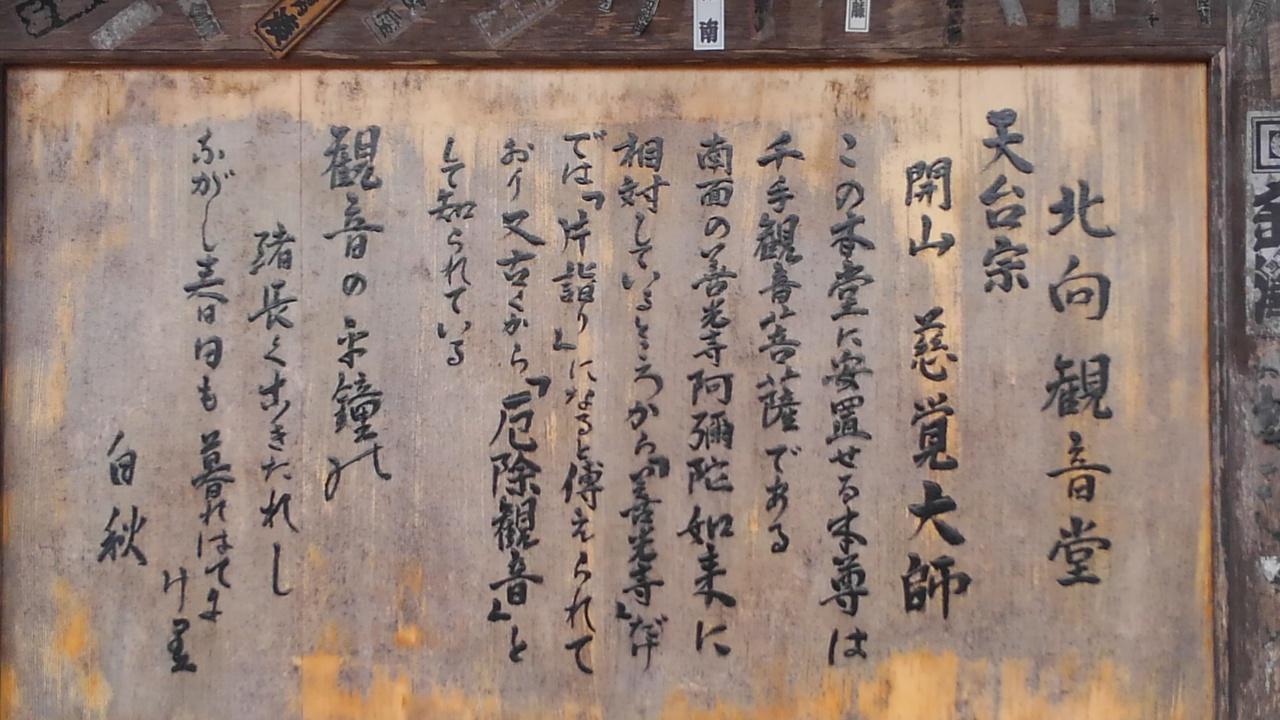 北向観音堂
天台宗
開山 慈覚大師
この本堂に安置せる本尊は
千手観音菩薩である
南面の善光寺阿彌陀如来に
相対しているところから「善光寺」だけ
では「片詣り」になると傳えられて
おり又古くから「厄除観音」と
して知られている
観音の平鐘の
緒長くさきたれし
ながし春日も暮れはてに
けり
白秋
南